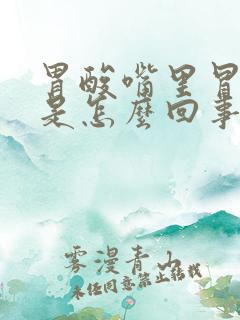 胃酸嘴里冒
是怎么回事
雾漫青山
未经同意禁止转载